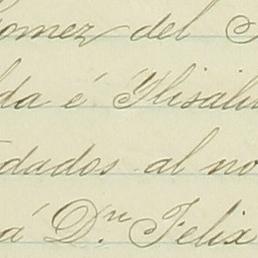 Gomez del
da é Ylisalit
dados al no
á Dn. Felix